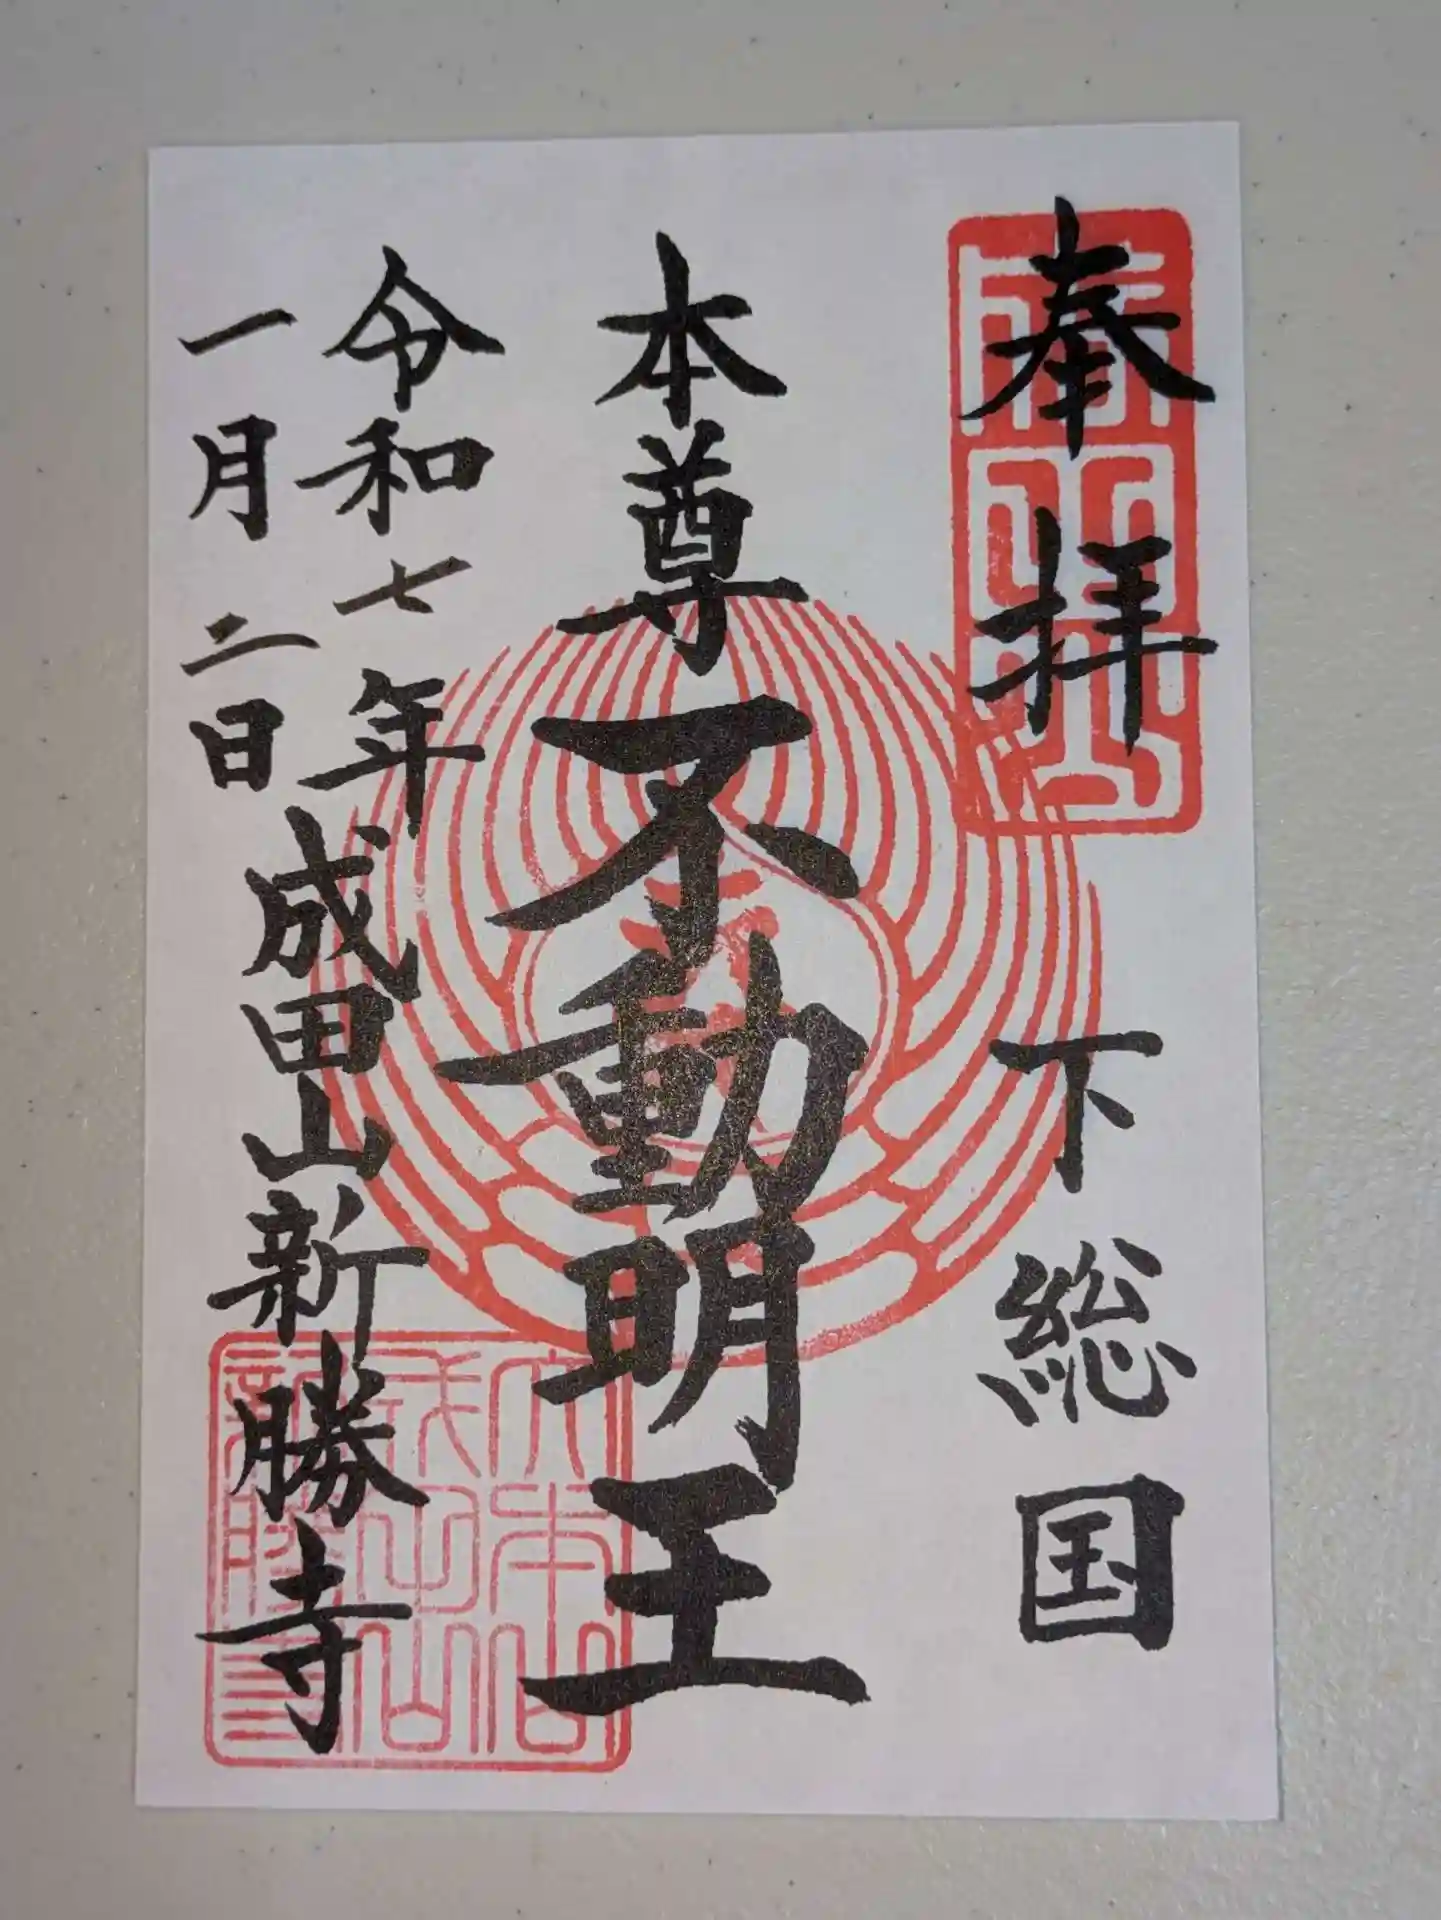 奉拝
下総国
本尊不動明王
令和七年
一月二日
成田山新勝寺
大本山成田山新勝寺